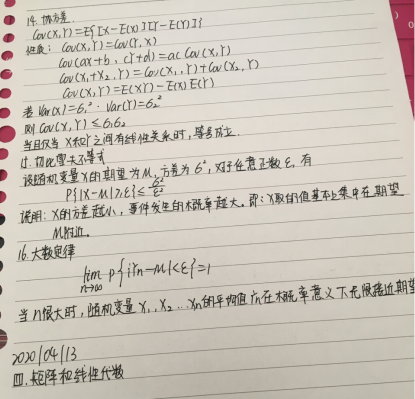 14. 协方差.
Cov(X,Y)=E{[X-E(X)][Y-E(Y)]}
性质: Cov(X,Y)=Cov(Y,X)
Cov(ax+b, cY+d)=ac Cov(X,Y)
Cov(X₁+X₂,Y)=Cov(X₁,Y)+Cov(X₂,Y)
Cov(X,Y)=E(XY)-E(X)E(Y)
若 Var(X)=6₁². Var(Y)=6₂²
则 Cov(X,Y)≤6₁6₂
当且仅当 X和Y之间有线性关系时,等号成立.
15. 切比雪夫不等式
设随机变量X的期望为M,方差为6²,对于任意正数ε,有
P{|X-M|≥ε}≤6²/ε²
说明: X的方差越小,事件发生的概率越大。即:X取的值基本上集中在期望
M附近。
16. 大数定律
lim n→∞ P{|Yn-M|<ε}=1
当n很大时,随机变量X₁,X₂...Xn的平均值Yn在概率意义下无限接近期望
2020/04/13
四. 矩阵和线性代数